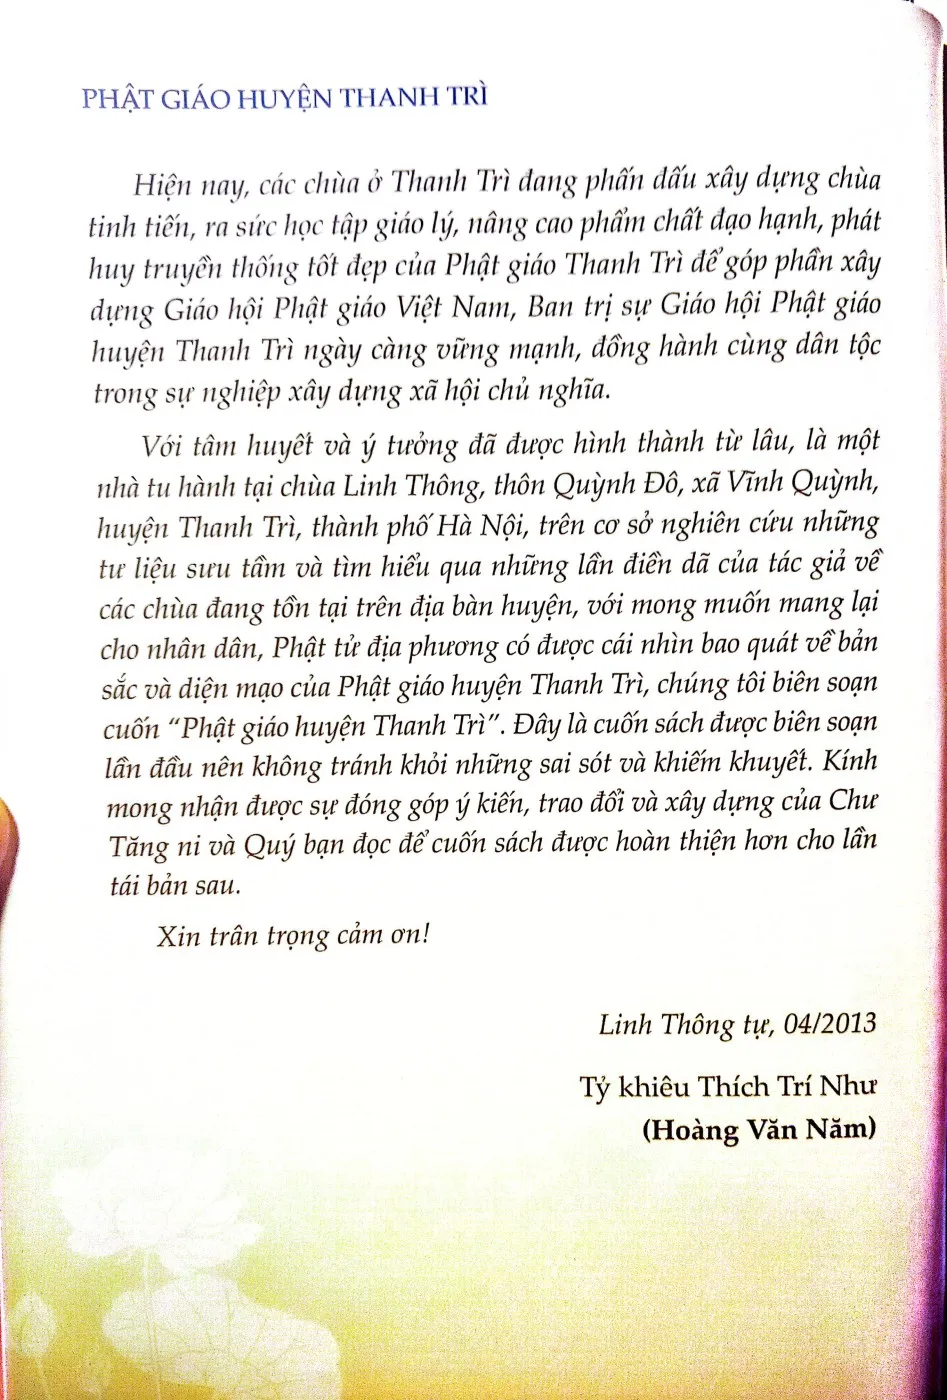 PHẬT GIÁO HUYỆN THANH TRÌ
Hiện nay, các chùa ở Thanh Trì đang phấn đấu xây dựng chùa
tinh tiến, ra sức học tập giáo lý, nâng cao phẩm chất đạo hạnh, phát
huy truyền thống tốt đẹp của Phật giáo Thanh Trì để góp phần xây
dựng Giáo hội Phật giáo Việt Nam, Ban trị sự Giáo hội Phật giáo
huyện Thanh Trì ngày càng vững mạnh, đồng hành cùng dân tộc
trong sự nghiệp xây dựng xã hội chủ nghĩa.
Với tâm huyết và ý tưởng đã được hình thành từ lâu, là một
nhà tu hành tại chùa Linh Thông, thôn Quỳnh Đô, xã Vĩnh Quỳnh,
huyện Thanh Trì, thành phố Hà Nội, trên cơ sở nghiên cứu những
tư liệu sưu tầm và tìm hiểu qua những lần điền dã của tác giả về
các chùa đang tồn tại trên địa bàn huyện, với mong muốn mang lại
cho nhân dân, Phật tử địa phương có được cái nhìn bao quát về bản
sắc và diện mạo của Phật giáo huyện Thanh Trì, chúng tôi biên soạn
cuốn “Phật giáo huyện Thanh Trì”. Đây là cuốn sách được biên soạn
lần đầu nên không tránh khỏi những sai sót và khiếm khuyết. Kính
mong nhận được sự đóng góp ý kiến, trao đổi và xây dựng của Chư
Tăng ni và Quý bạn đọc để cuốn sách được hoàn thiện hơn cho lần
tái bản sau.
Xin trân trọng cảm ơn!
Linh Thông tự, 04/2013
Tỷ khiêu Thích Trí Như
(Hoàng Văn Năm)